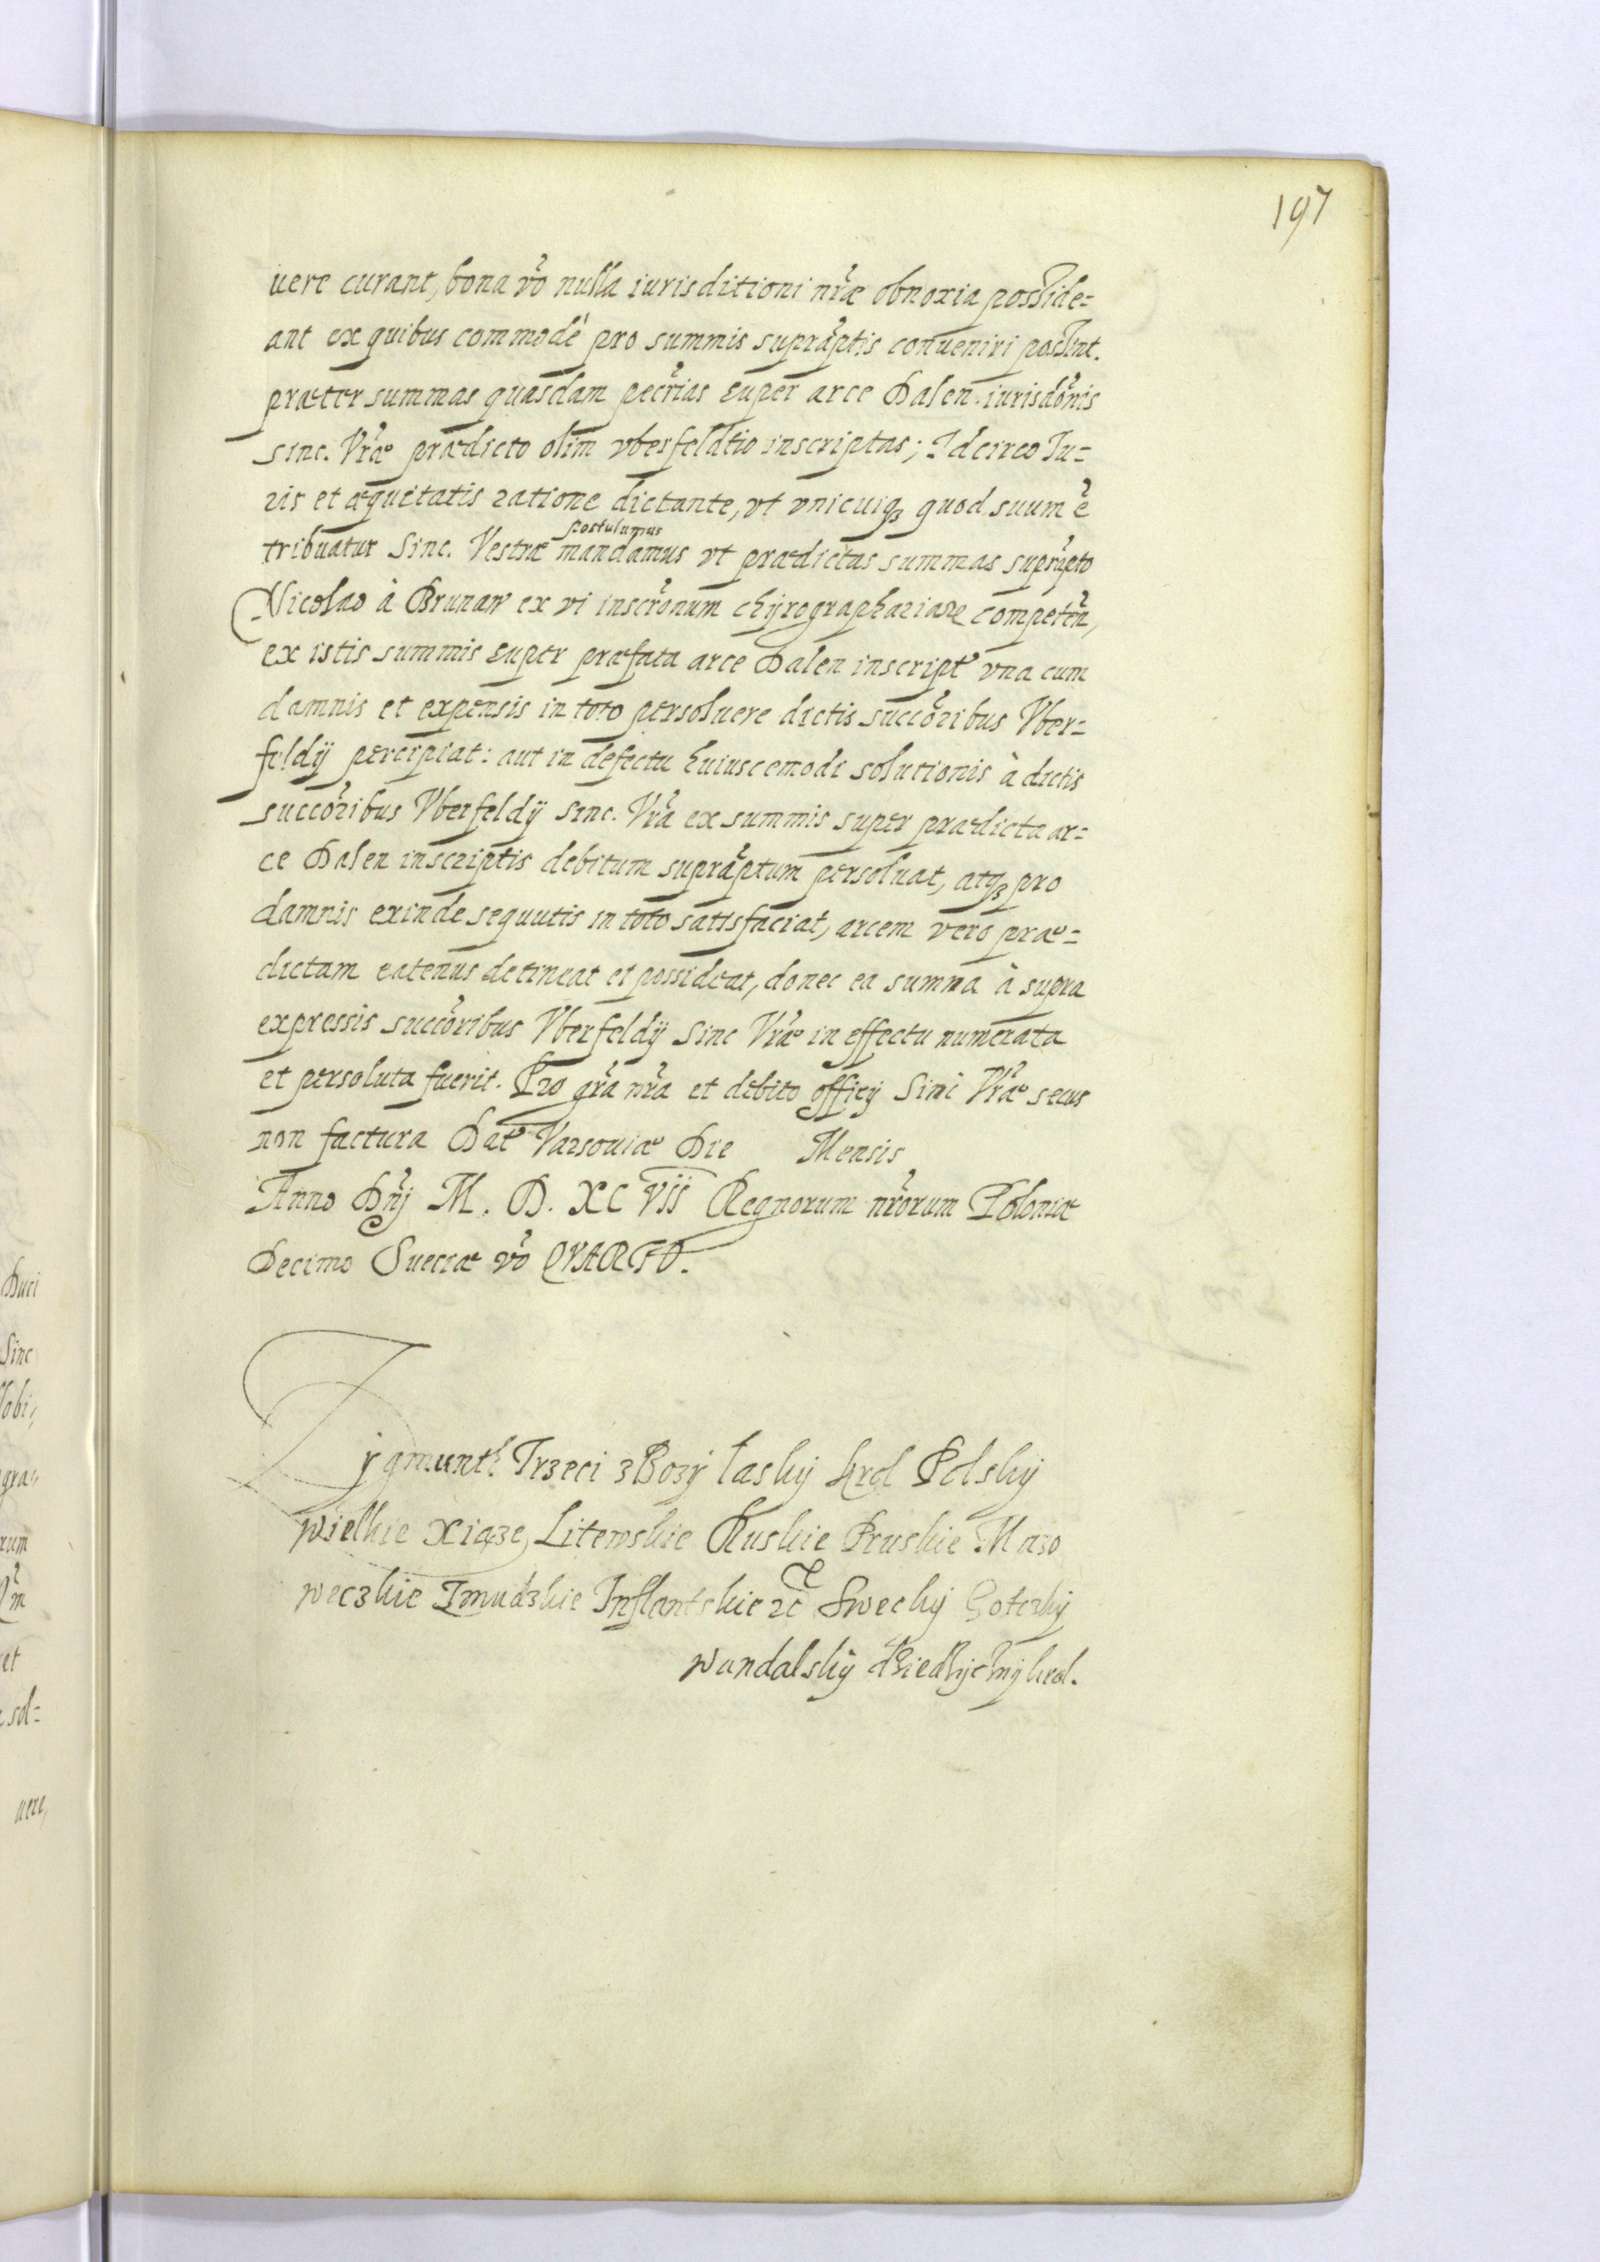 197
uere curant, bona vro nulla iurisditioni nrae obnoxia posside=
ant ex quibus commodè pro summis supraptis conueniri possint.
praeter summas quasdam pecrias super arce Dalen iurisdonis
sinc. Vrae praedicto olim vberfeldtio inscriptas; Idcirco Iu=
ris et aequitatis ratione dictante, vt vnicuiqȝ quod suum e
postulamus
tribuatur Sinc. Vestrae mandamus vt praedictas summas suprapto
Nicolao à Brunaw ex vi inscronum chijrographariare competen,
ex istis summis super praefata arce Dalen inscript vna cum
damnis et expensis in toto persoluere dictis succoribus Vber=
feldij percipiat: aut in defectu huiuscemodi solutionis à dictis
succoribus Vberfeldij sinc. Vra ex summis super praedicta ar=
ce Dalen inscriptis debitum supraptum persoluat, atqȝ pro
damnis exinde sequutis in toto satisfaciat, arcem vero prae=
dictam eatenus detineat et possideat, donec ea summa à supra
expressis succoribus Vberfeldij Sinc Vrae in effectu numerata
et persoluta fuerit. Pro gra nra et debito officij Sinc Vrae secus
non factura Dat Varsouiae Die Mensis
Anno Dnj M. D. XC VII Regnorum nrorum Poloniae
Decimo Sueciae vo QVARTO.
Zygmunth Trzeci z Bozy łasky krol Polsky
wielkie xiąze Litewskie Ruskie Pruskie Mazo
weczkie Zmudzkie Inflantskie ꝛc Swecky Gotczky
wandalsky dziedzycznij krol.
Duci
Sinc
rum
et
sol=
uere,